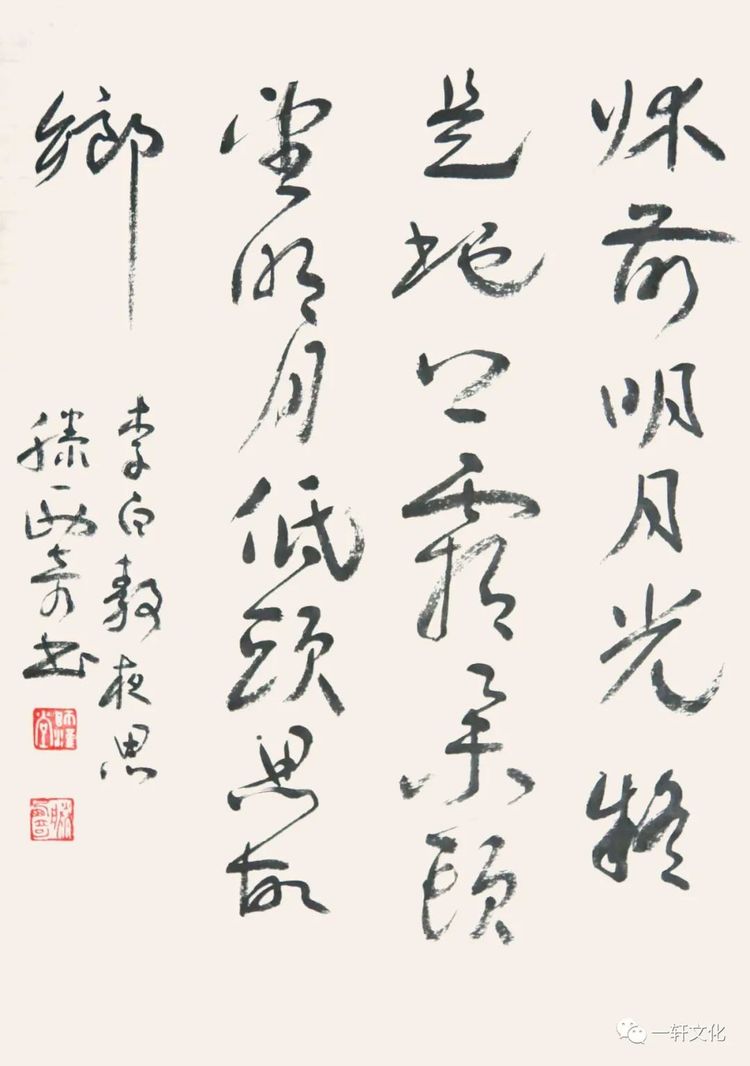 牀前明月光疑
是地上霜舉頭
望明月低頭思故
鄉
李白靜夜思
滕西奇書
一轩文化